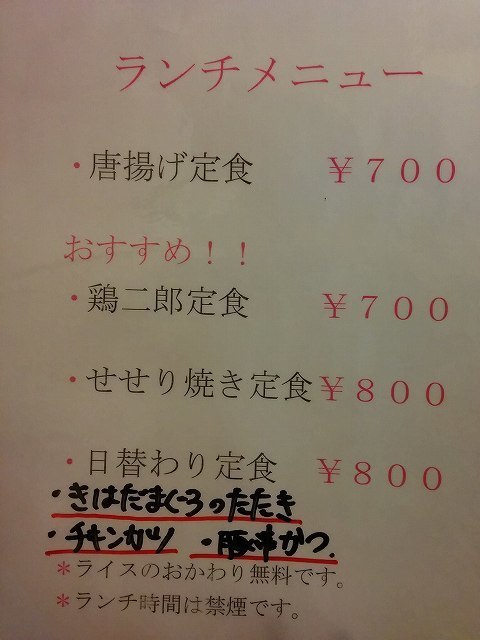 ランチメニュー
・唐揚げ定食 ￥７００
おすすめ！！
・鶏二郎定食 ￥７００
・せせり焼き定食 ￥８００
・日替わり定食 ￥８００
・きはだまぐろのたたき
・チキンカツ ・豚串かつ.
＊ライスのおかわり無料です。
＊ランチ時間は禁煙です。